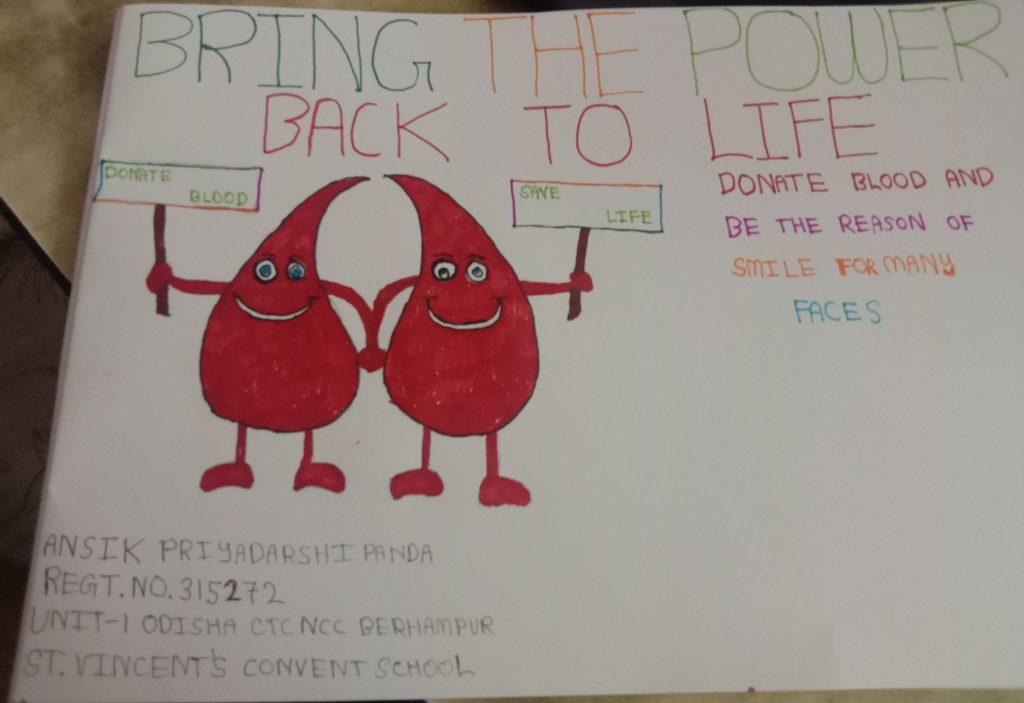 BRING THE POWER
BACK TO LIFE
DONATE
BLOOD
SAVE
LIFE
DONATE BLOOD AND
BE THE REASON OF
SMILE FOR MANY
FACES
ANSIK PRIYADARSHI PANDA
REGT.NO.315272
UNIT-1 ODISHA CTC NCC BERHAMPUR
ST.VINCENT'S CONVENT SCHOOL